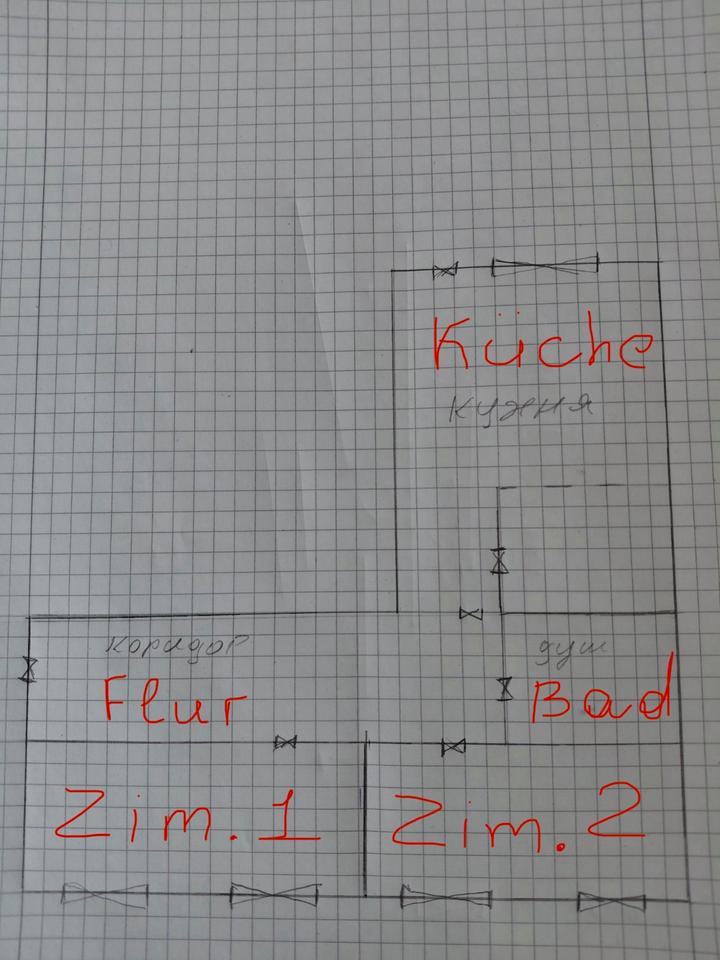 Küche
кухня
коридор
душ
Flur
Bad
Zim. 1
Zim. 2